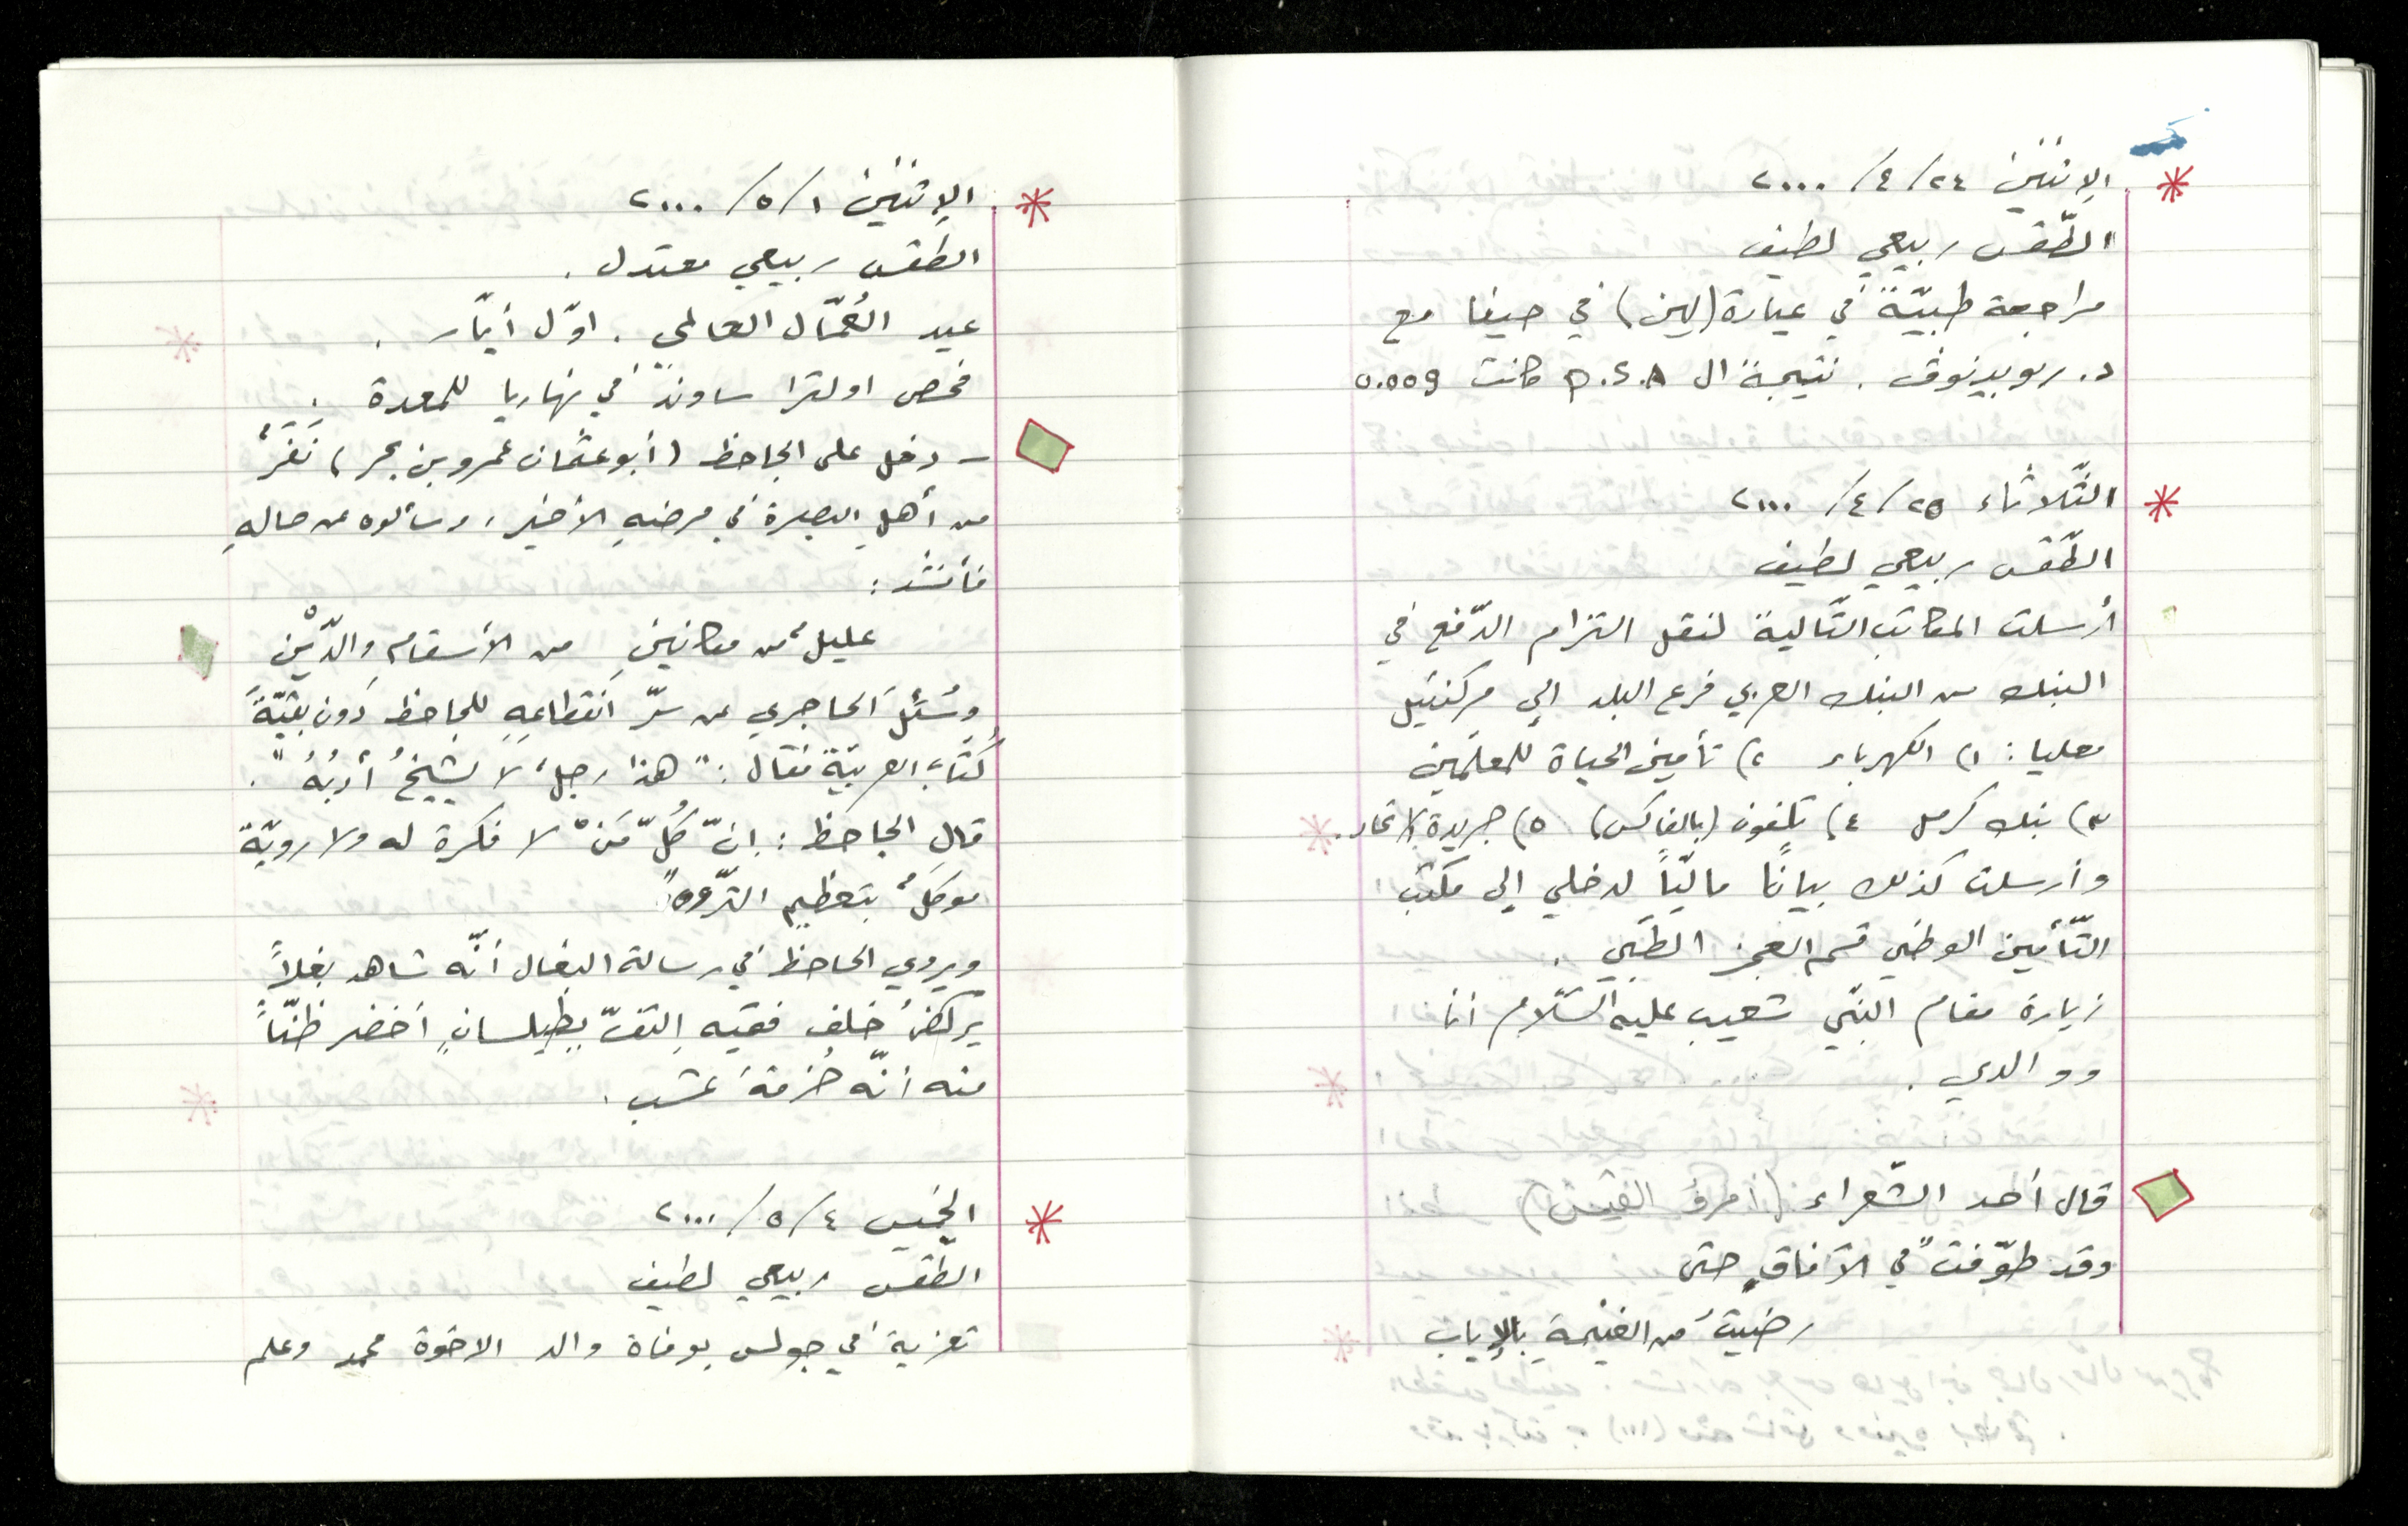 الإثنين ٢٤/٤/٢٠٠٠
الطّقس ربيعي لطيف
مراجعة طبيّة في عيادة (لين) في حيفا مع
د. روبينوف. نتيجة ال P.S.A كانت 0.009
الثّلاثاء ٢٥/٤/٢٠٠٠
الطّقس ربيعي لطيف
أرسلت المكاتب التّالية لنقل التزام الدّفع في
البنك من البنك العربي فرع البلد الى مركنتيل
معليا: ١) الكهرباء ٢) تأمين الحياة للمعلّمين
٣) بنك كرمل ٤) تلفون (بالفاكس) ٥) جريدة الاتحاد.
وأرسلت كذلك بيانًا ماليّاً لدخلي إلى مكتب
التّأمين الوطني قسم العجز الطّبّي.
زيارة مقام النّبي شعيب عليه السّلام أنا
ووالدي.
قال أحد الشّعراء (أمرؤ القيس)
وقد طوّفتُ في الآفاقِ حتى
رضيتُ من الغنيمةِ بالإيابِ
الإثنين ١/٥/٢٠٠٠
الطّقس ربيعي معتدل.
عيد العُمّال العالمي. اوّل أيّار.
فحص اولترا ساوند في نهاريا للمعدة.
– دخل على الجاحظ (أبو عثمان عمرو بن بحر) نَفَرٌ
من أهلِ البصرة في مرضهِ الأخير، وسألوه عن حالهِ
فأنشد:
عليلٌ من مكانينِ من الأسقامِ والدّيْنِ
وسُئلَ الحاجري عن سرّ انقطاعهِ للجاحظ دون بقيّة
كُتّاب العربيّة فقال: "هذا رجلٌ لا يشيخُ أدبُهُ".
قال الجاحظ: إنّ كُلّ مَنْ لا فكرة له ولا رويّة
موكلٌ بتعظيم التّرّهة"
ويروي الجاحظ في رسالة البغال أنّه شاهد بغلاً
يركضُ خلف فقيه التفّ بطيلسانٍ أخضر ظنّاً
منه انّه حُزمةَ عشب.
الخميس ٤/٥/٢٠٠٠
الطّقس ربيعي لطيف
تعزية في جولس بوفاة والد الاخوة محمد وعلم